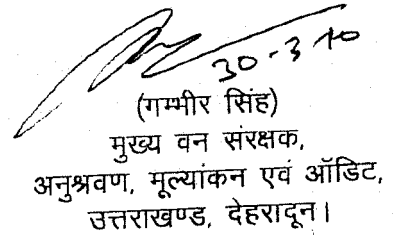 30-3-10
(गम्भीर सिंह)
मुख्य वन संरक्षक,
अनुश्रवण, मूल्यांकन एवं ऑडिट,
उत्तराखण्ड, देहरादून।